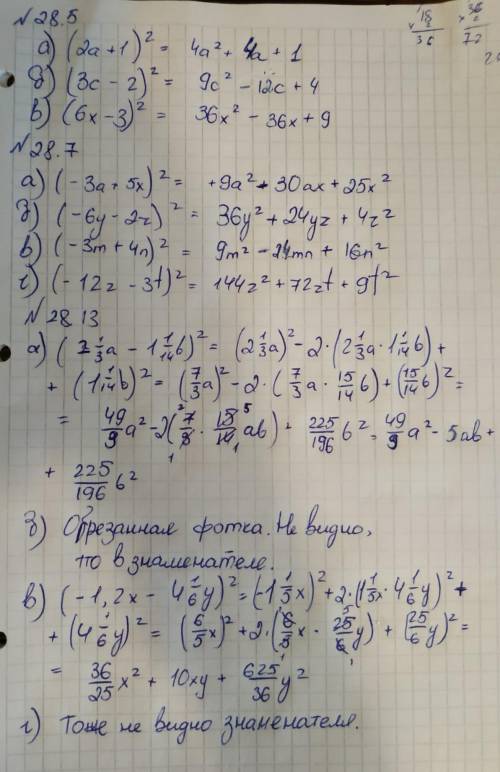 №28.5
а) (2a+1)² = 4a² + 4a + 1
б) (3c - 2)² = 9c² - 12c + 4
в) (6x - 3)² = 36x² - 36x + 9
№28.7
а) (-3a + 5x)² = +9a² - 30ax + 25x²
б) (-6y - 2z)² = 36y² + 24yz + 4z²
в) (-3m + 4n)² = 9m² - 24mn + 16n²
г) (-12z - 3t)² = 144z² + 72zt + 9t²
№28 13
а) (2 1/3 a - 1 1/14 b)² = (2 1/3 a)² - 2·(2 1/3 a · 1 1/14 b) +
+ (1 1/14 b)² = (7/3 a)² - 2·(7/3 a · 15/14 b) + (15/14 b)² =
= 49/9 a² - 2(7/3 · 15/14 ab) + 225/196 b² = 49/9 a² - 5ab +
+ 225/196 b²
б) Обрезанная фотка. Не видно,
что в знаменателе.
в) (-1,2x - 4 1/6 y)² = (-1 1/5 x)² + 2·(1 1/5 x · 4 1/6 y)² +
+ (4 1/6 y)² = (6/5 x)² + 2·(6/5 x · 25/6 y) + (25/6 y)² =
= 36/25 x² + 10xy + 625/36 y²
г) Тоже не видно знаменателя.
18
36
36
72